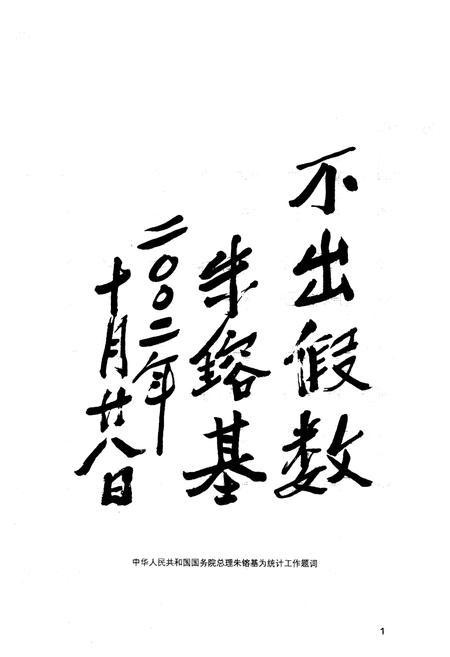 不出假数
朱镕基
二〇〇二年
十月廿八日
中华人民共和国国务院总理朱镕基为统计工作题词
1